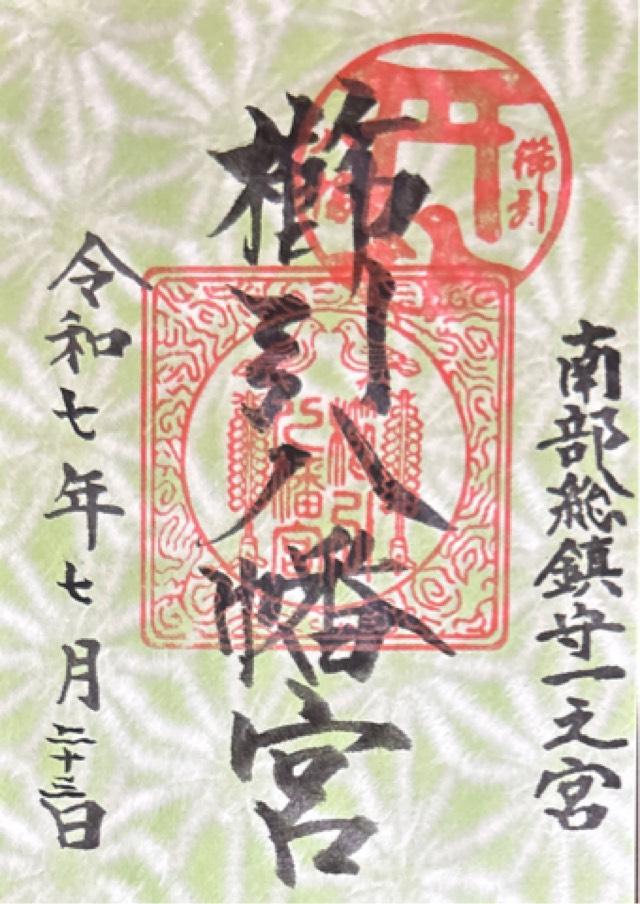 南部総鎮守一之宮
櫛引八幡宮
櫛引
八幡宮
櫛引
八幡宮
令和七年七月二十三日